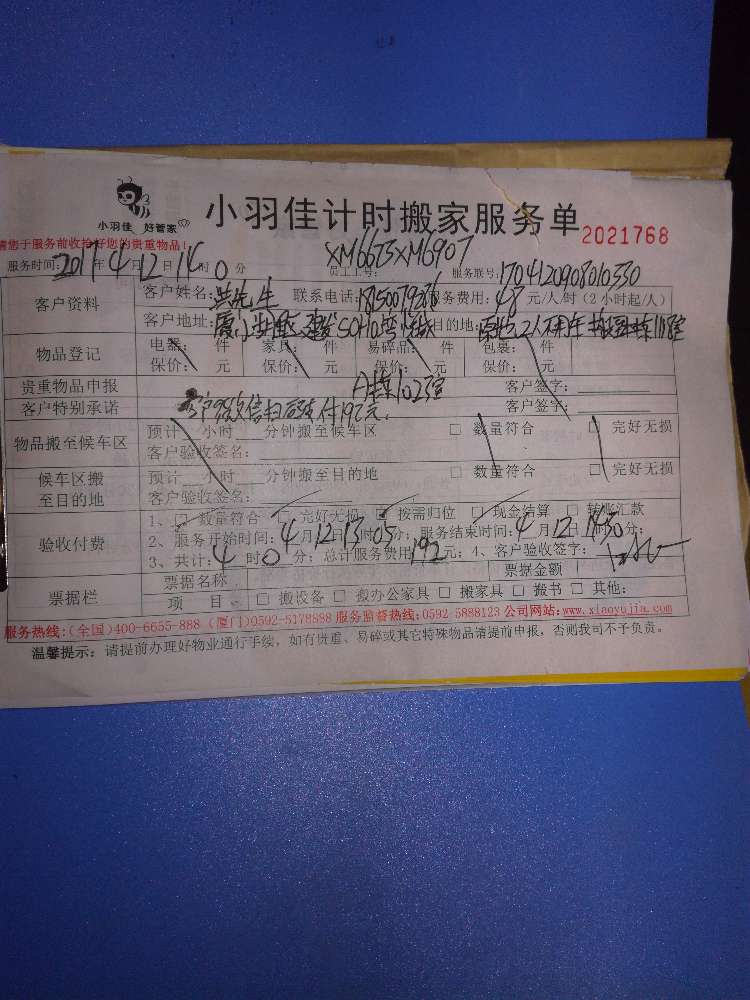 小羽佳 好管家
小羽佳计时搬家服务单 2021768
请您于服务前收拾好您的贵重物品!
服务时间: 2017年4月12日14时0分 员工工号: XM6673XM6907 服务联号: 1704120908010330
客户资料 客户姓名: 洪先生 联系电话: 服务费用: 48元/人/时(2小时起/人)
客户地址: 厦门 SOHO 目的地:
A栋1023室
物品登记 电器: 件 家具: 件 易碎品: 件 包裹: 件
保价: 元 保价: 元 保价: 元 保价: 元
贵重物品申报 客户签字:
客户特别承诺 客户微信扫码支付192元. 客户签字:
物品搬至候车区 预计 小时 分钟搬至候车区 □ 数量符合 □ 完好无损
客户验收签名:
候车区搬至目的地 预计 小时 分钟搬至目的地 □ 数量符合 □ 完好无损
客户验收签名:
验收付费 1、□ 数量符合 □ 完好无损 □ 按需归位 □ 现金结算 □ 转账汇款
2、服务开始时间: 4月12日13时05分; 服务结束时间: 4月12日 时 分;
3、共计: 4时0分; 总计服务费用192元; 4、客户验收签字:
票据栏 票据名称 票据金额
项 目 □ 搬设备 □ 搬办公家具 □ 搬家具 □ 搬书 □ 其他:
服务热线:(全国)400-6655-888 (厦门)0592-5178888 服务监督热线:0592-5888123 公司网站:www.xiaoyujia.com
温馨提示: 请提前办理好物业通行手续, 如有贵重、易碎或其它特殊物品请提前申报, 否则我司不予负责。